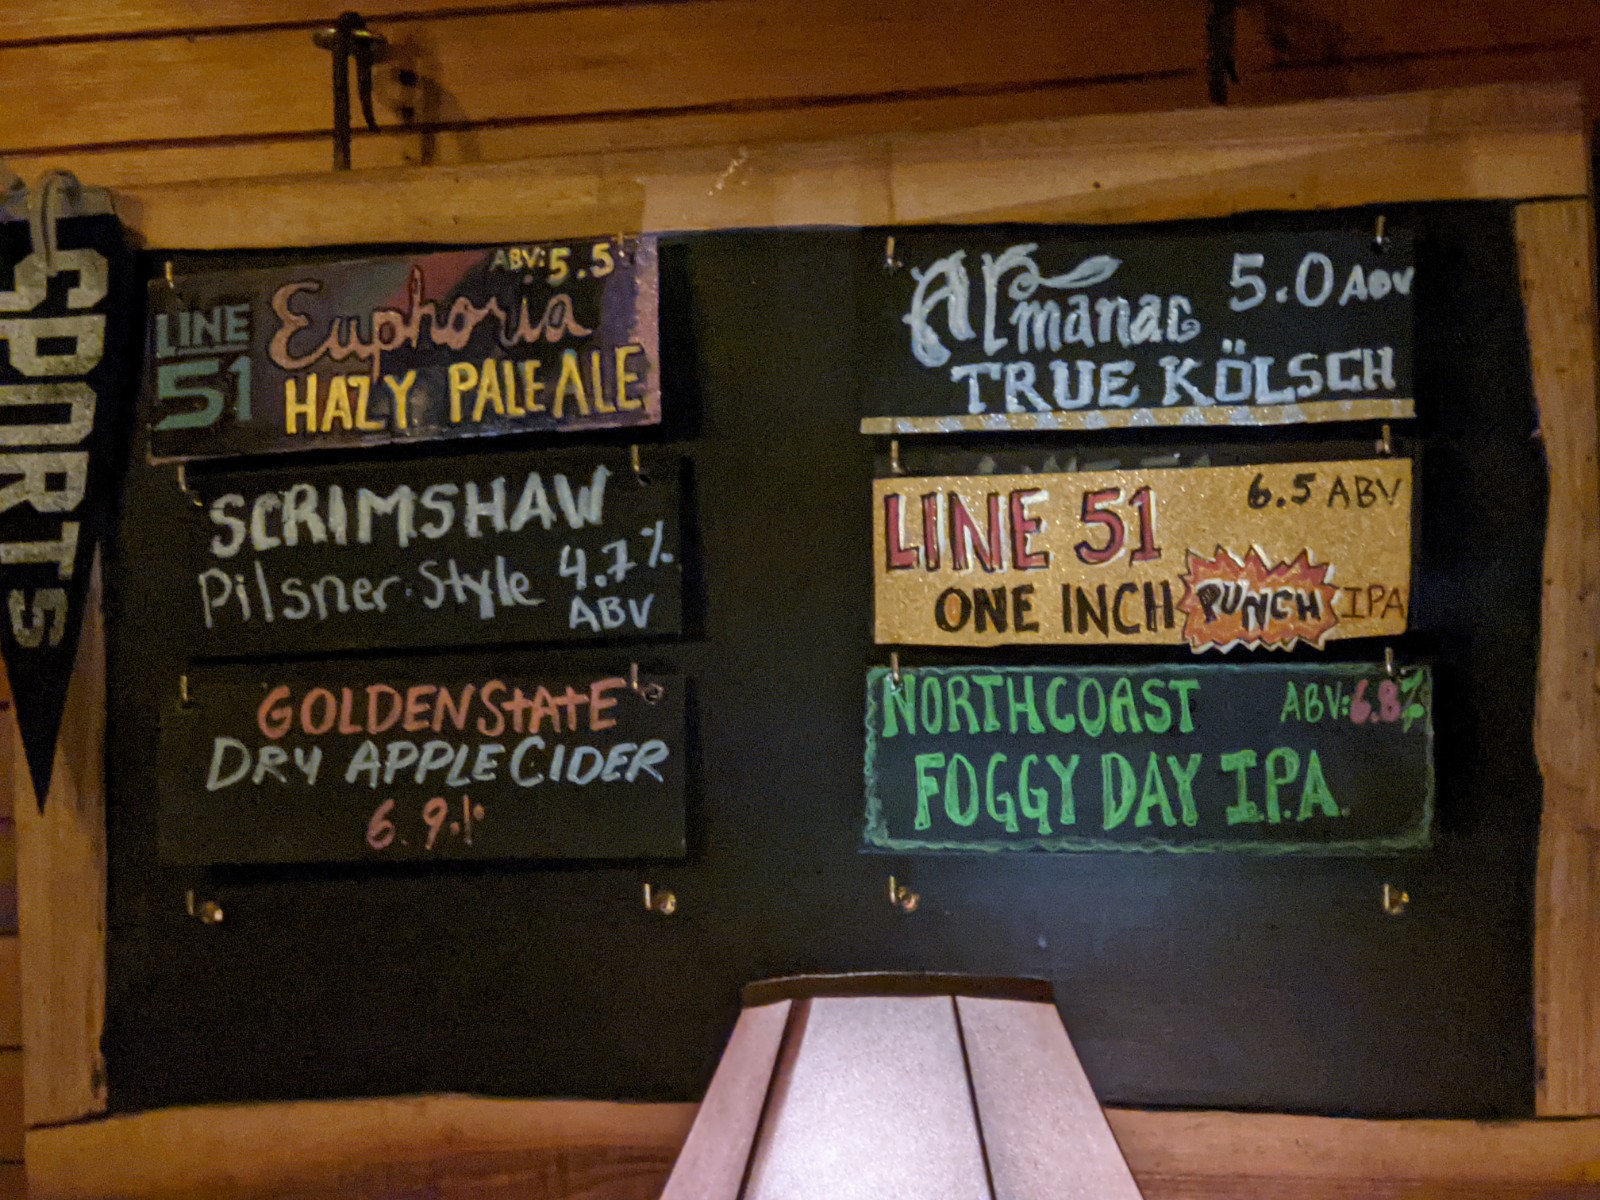 SPORTS
ABV: 5.5
LINE 51
Euphoria
HAZY PALE ALE
SCRIMSHAW
Pilsner-Style 4.7%
ABV
GOLDEN STATE
DRY APPLE CIDER
6.9%
Almanac 5.0 ABV
TRUE KÖLSCH
LINE 51 6.5 ABV
ONE INCH PUNCH IPA
NORTHCOAST ABV: 6.8%
FOGGY DAY I.P.A.